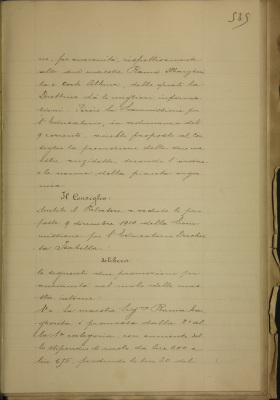 535
ne, per anzianità, rispettivamente
alle due maestre Rama Margheri
ta e Conti Albina, delle quali la
Direttrice dà le migliori informa
zioni. Perciò la Commissione per
l'Educatorio, in adunanza del
9 corrente, fa proposta al Con
siglio la promozione delle due mae
stre anzidette secondo l'
e la norma della pianta orga
nica.
Il Consiglio:
Sentito il Relatore e vedute le pro
poste 9 dicembre 1910 della Com
missione per l'Educatorio Duches
sa Isabella:
delibera
le seguenti due promozioni per
anzianità nel ruolo delle mae
stre interne:
1° La maestra Sig.na Rama Mar
gherita è promossa dalla 2ª al
la 1ª categoria, con aumento del
lo stipendio di ruolo da lire 600 a
lire 675, perdendo le lire 20 del